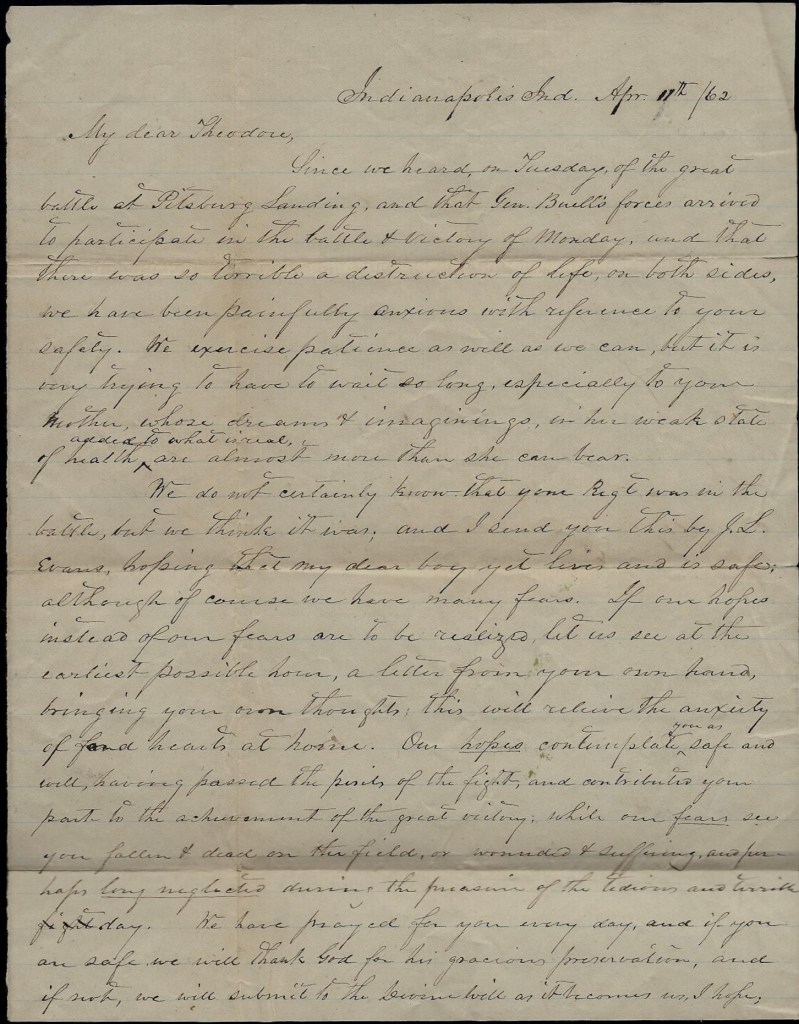 Indianapolis Ind. Apr. 11th /62
My dear Theodore,
Since we heard, on Tuesday, of the great
battle at Pitsburg Landing, and that Gen. Buell's forces arrived
to participate in the battle & victory of Monday, and that
there was so terrible a destruction of life, on both sides,
we have been painfully anxious with reference to your
safety. We exercise patience as well as we can, but it is
very trying to have to wait so long, especially to your
mother, whose dreams & imaginings, in her weak state
added to what is real,
of health, are almost more than she can bear.
We do not certainly know that your Regt was in the
battle, but we think it was; and I send you this by J. L.
Evans, hoping that my dear boy yet lives and is safe;
although of course we have many fears. If our hopes
instead of our fears are to be realized, let us see at the
earliest possible hour, a letter from your own hand,
bringing your own thoughts; this will relieve the anxiety
of fond hearts at home. Our hopes contemplate
you as
safe and
well, having passed the perils of the fight, and contributed your
part to the achievement of the great victory; while our fears see
you fallen & dead on the field, or wounded & suffering, and per-
haps long neglected during the pressure of the tedious and terrible
fight day. We have prayed for you every day, and if you
are safe we will thank God for his gracious preservation, and
if not, we will submit to the Divine will as it becomes us, I hope,